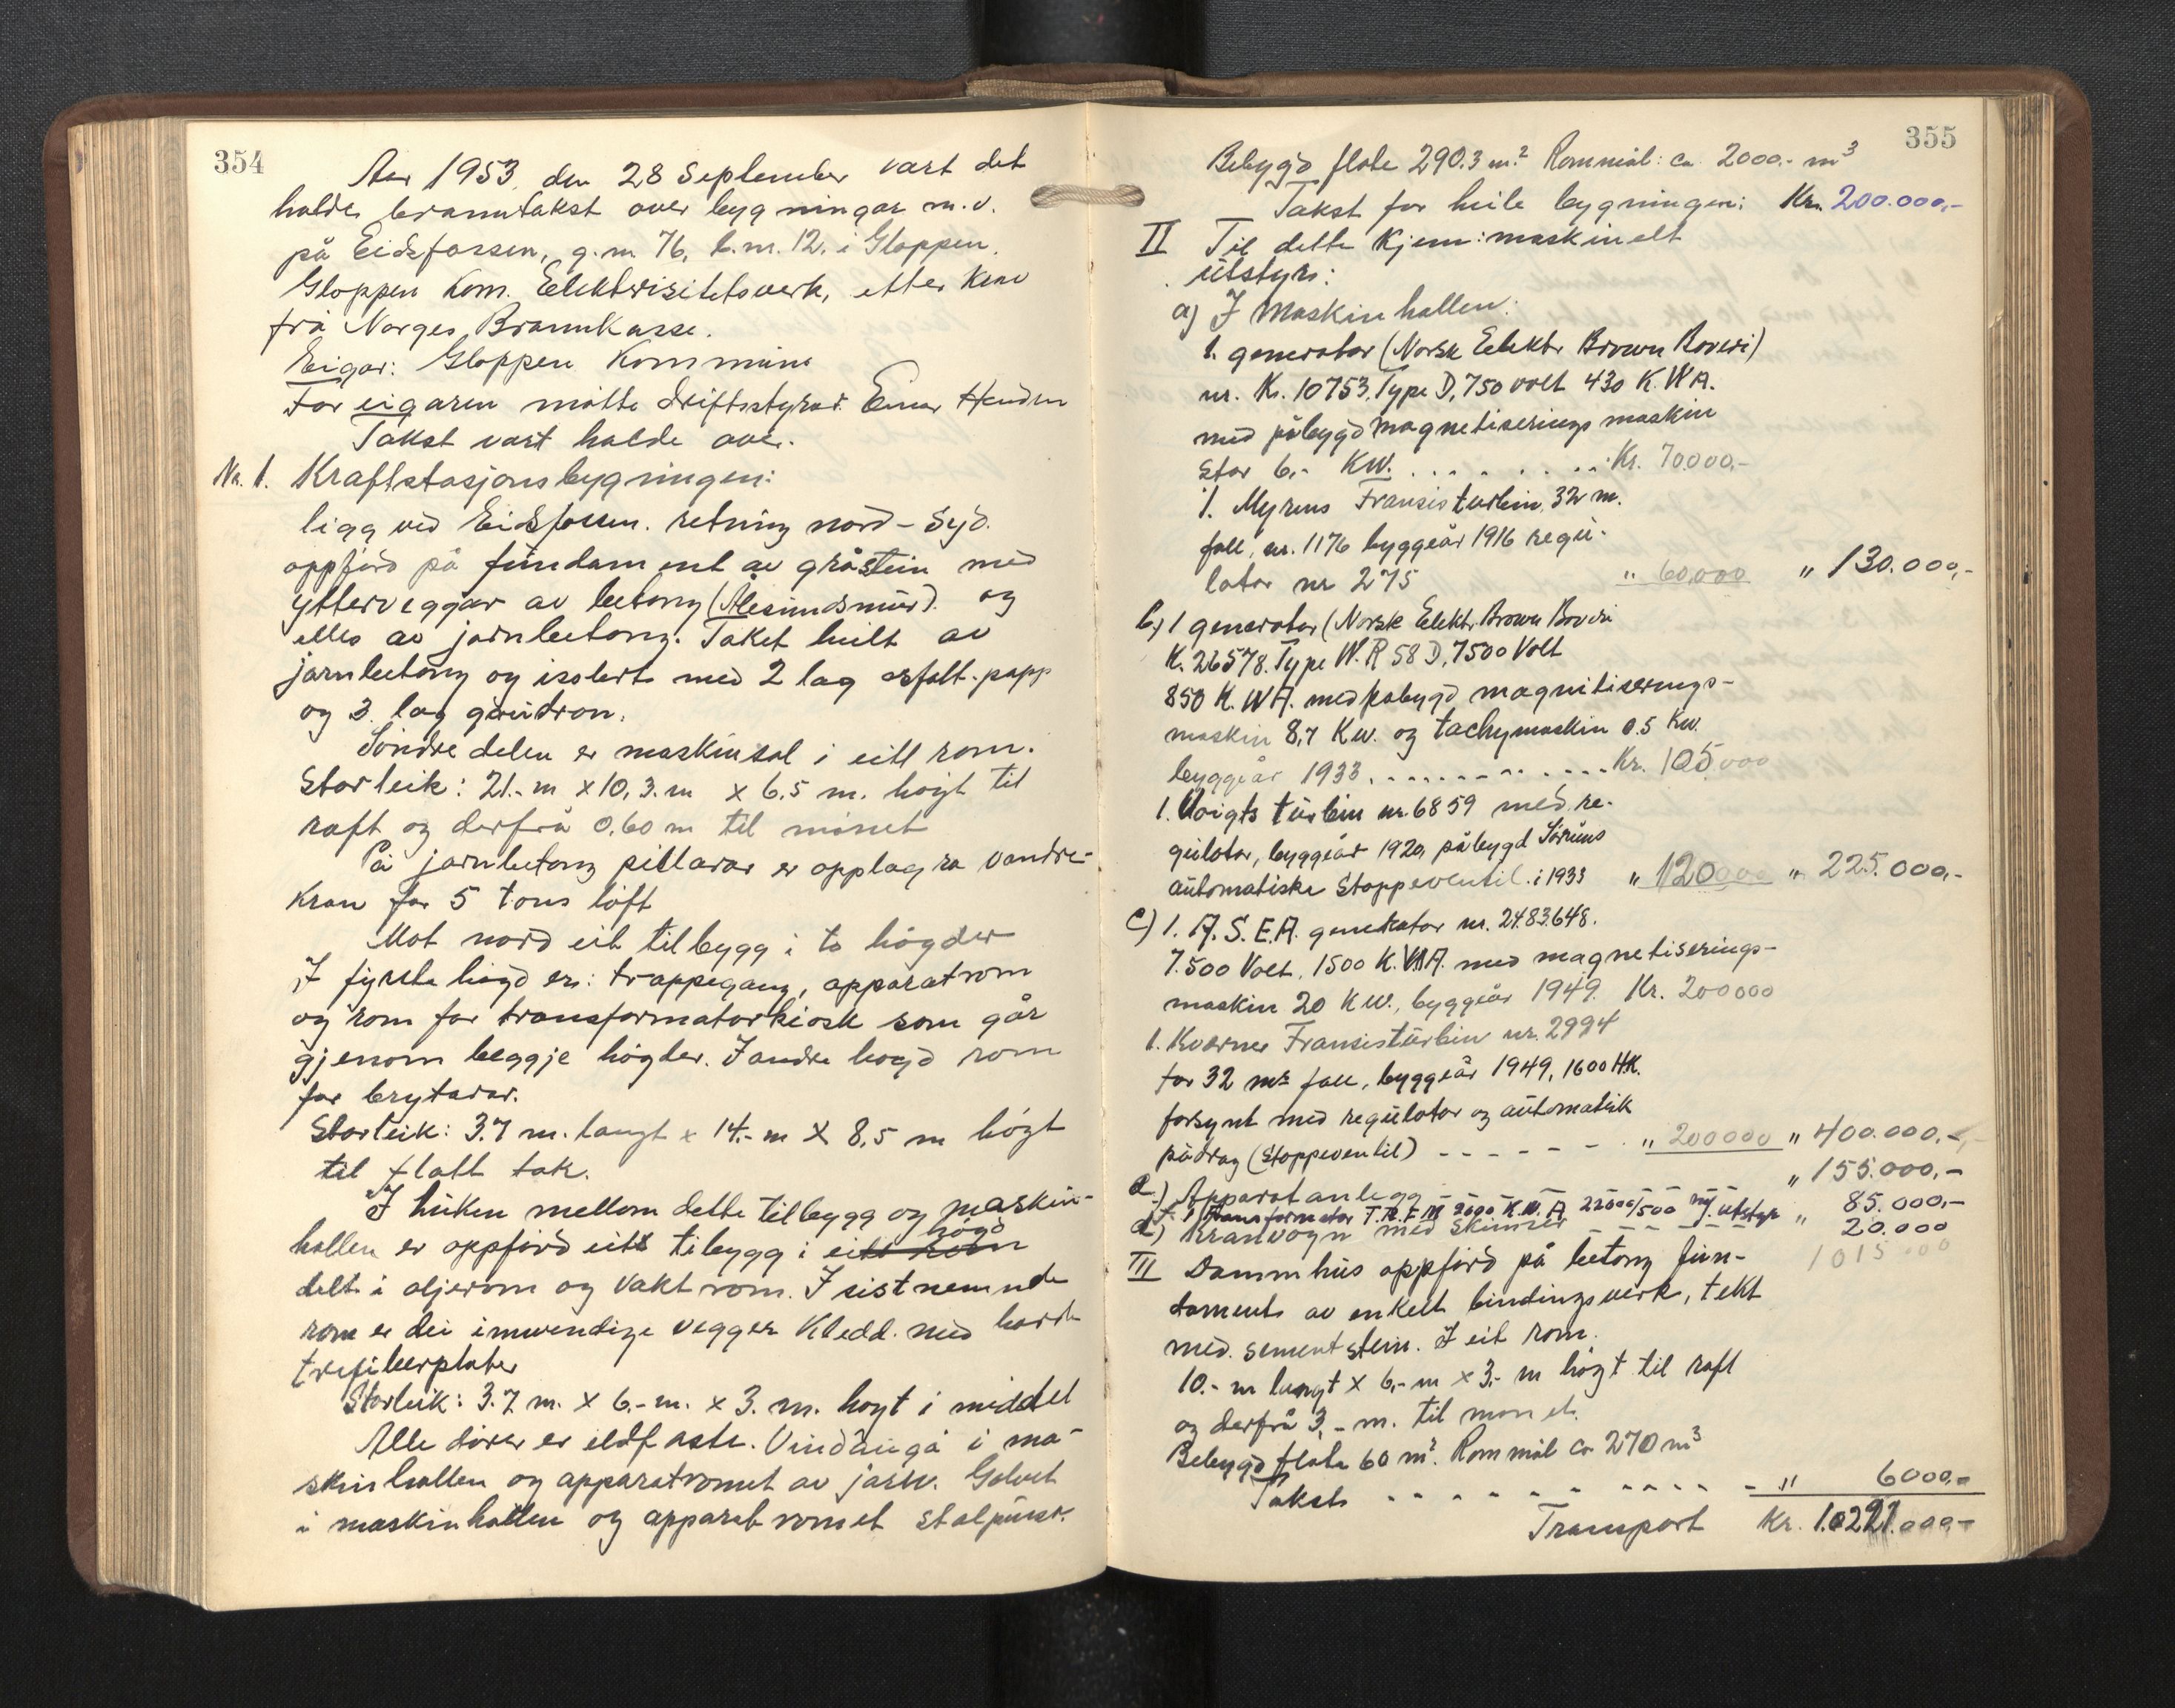 354
Aar 1953, den 28 September vart det
halde branntakst over bygningar m.v.
på Eidsfossen, g.nr. 76, b.nr. 12. i Gloppen.
Gloppen Kom. Elektrisitetsverk, etter krav
frå Norges Brannkasse.
Eigar: Gloppen Kommune
For eigaren møtte driftsstyrar Einar
Takst vart halde over.
Nr. 1. Kraftstasjonsbygningen:
ligg ved Eidsfossen. retning nord-syd.
oppførd på fundament av gråstein med
ytterveggar av betong (Ålesundsmur) og
elles av jarnbetong. Taket heilt av
jarnbetong og isolert med 2 lag asfalt-papp
og 3 lag goudron.
Søndre delen er maskinsal i eitt rom.
Storleik: 21.-m x 10,3.m x 6,5 m. høgt til
raft og derfrå 0,60 m til mønet
På jarnbetong pillarar er opplagra vandre-
kran for 5 tons løft
Mot nord eit tilbygg i to høgder
I fyrste høgd er: trappegang, apparatrom
og rom for transformatorkiosk som går
gjenom beggje høgder. I andre høgd rom
for brytarar.
Storleik: 3.7 m. langt x 14.-m x 8,5 m høgt
til flatt tak.
I huken mellom dette tilbygg og maskin-
hallen er oppførd eitt tilbygg i eitt rom høgd
delt i oljerom og vaktrom. I sistnemnde
rom er dei innvendige vegger kledd. med harde
trefiberplater
Storleik: 3.7 m. x 6.-m. x 3. m. høgt i middel
Alle dører er eldfaste. Vindauga i ma-
skinhallen og apparatromet av jarn. Golvet
i maskinhallen og apparatromet stålpuss.
355
Bebygd flate 290.3 m.² Rommål: ca. 2000.- m³
Takst for heile bygningen: Kr. 200.000,-
II Til dette kjem: maskinelt
utstyr:
a) I Maskinhallen:
1. generator (Norsk Elektr. Brown Boveri)
nr. K. 10753, Type D, 750 volt 430 K.W.A.
med påbygd magnetiserings maskin
stor 6,- KW. . . . . . . . Kr. 70000,-
1. Myrens Fransisturbin, 32 m.
fall, nr. 1176 byggeår 1916 regu-
lator nr 275 " 60000 " 130.000,-
b) 1 generator (Norsk Elektr. Brown Boveri
K. 26578. Type W.R 58 D, 7500 Volt
850 K.W.A. med påbygd magnitiserings-
maskin 8,7 Kw. og tachymaskin 0.5 Kw.
byggeår 1933. . . . . . . . . . . Kr. 105000
1. Voigts turbin nr. 6859 med re-
gulator, byggeår 1920, påbygd Sørums
automatiske stoppeventil. i 1933 " 120000 " 225.000,-
c) 1. A.S.E.A. generator nr. 2483648.
7.500 Volt, 1500 K.W.A. med magnetiserings-
maskin 20 KW., byggeår 1949. Kr. 200000
1. Kværner Fransisturbin nr. 2994
for 32 mtr fall, byggeår 1949, 1600 HK.
forsynt med regulator og automatisk
pådrag (stoppeventil) - - - - - - " 200000 " 400.000,-
d) Apparatanlegg - - - " 155.000,-
1 Transformator T.R.F.M 2000 K.W.A 22000/500 m/utstyr " 85.000,-
d) Kranvogn med skinner - - - - 20.000
1015000
III Dammhus oppførd på betong fun-
daments av enkelt bindingsverk, tekt
med. sementstein. I eit rom.
10.- m langt x 6,- m x 3,- m høgt til raft
og derfrå 3,- m. til mønet.
Bebygd flate 60 m². Rommål ca 270 m³
Takst - - - - - - - - - - - " 6000,-
Transport Kr. 1.021.000,-